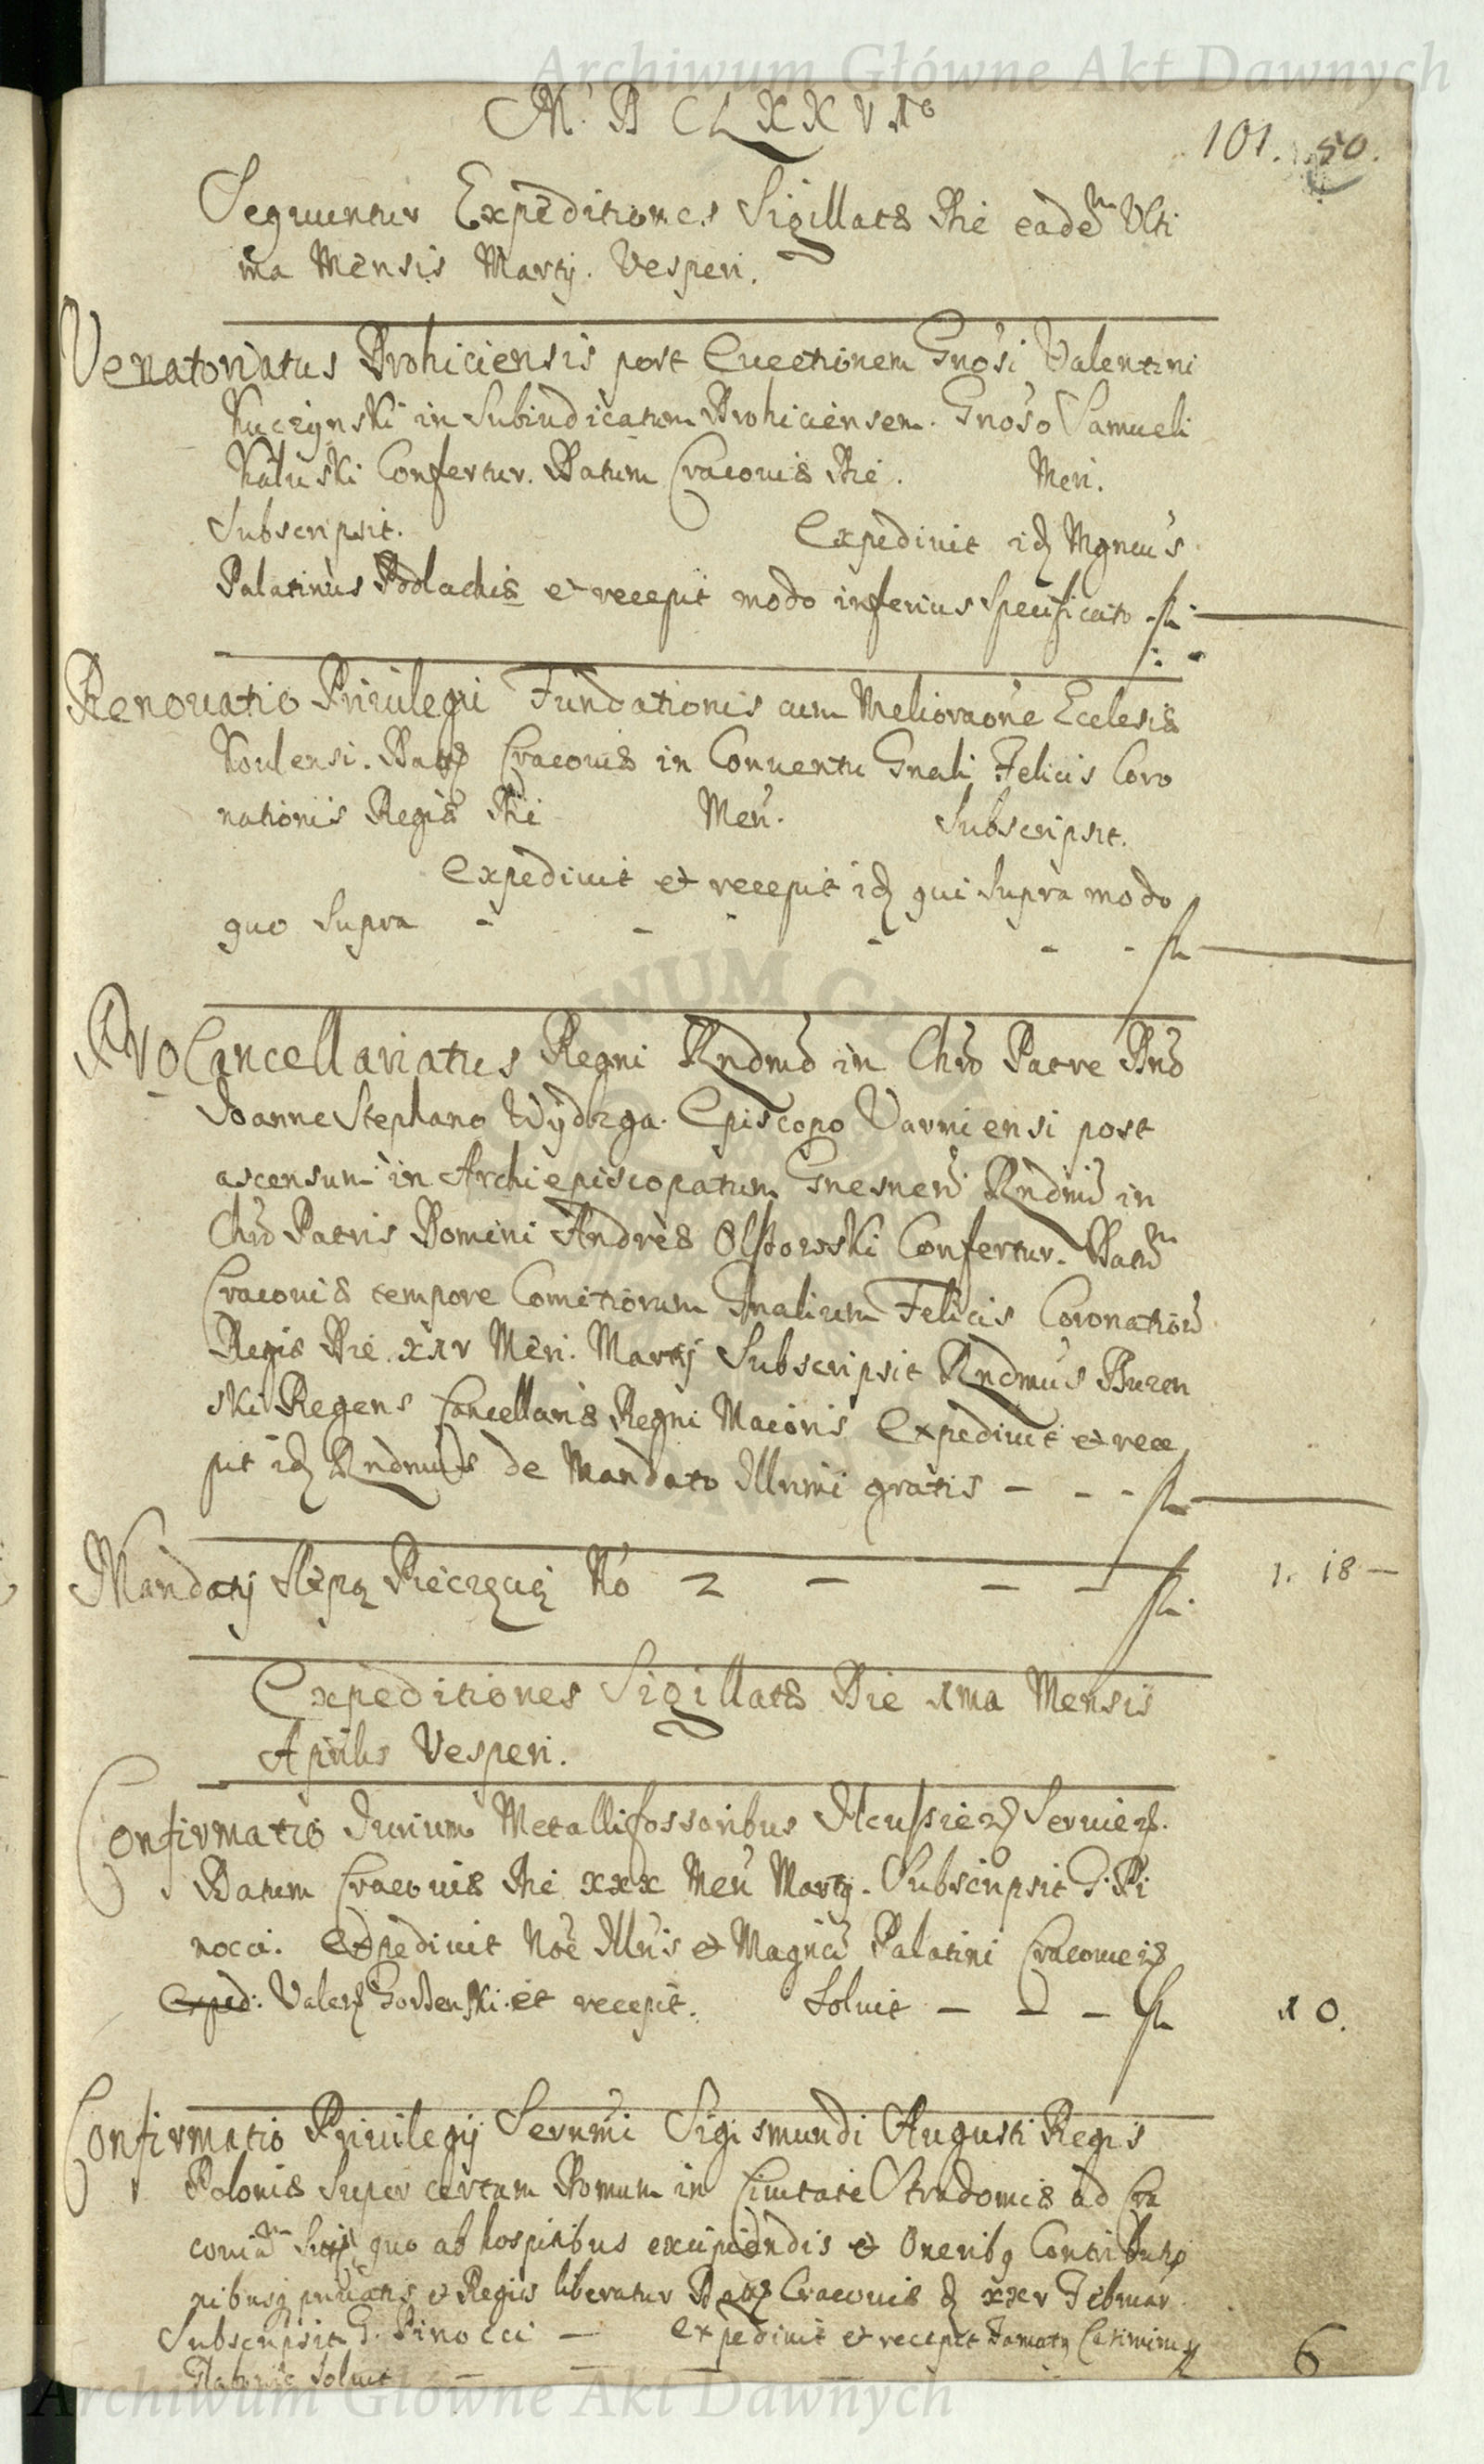 Archiwum Główne Akt Dawnych
M. D C L X X V I o
101. 50.
Sequuntur Expeditiones Sigillatæ Die eadem Ulti
ma Mensis Martij. Vesperi.
Venatoriatus Drohiciensis post Evectionem Gnosi Valentini
Kuczynski in Subiudicatum Drohiciensem. Gnoso Samueli
Kaluski Confertur. Datum Cracoviæ Die. Men.
Subscripsit. Expedivit idem Mgncus
Palatinus Podlachiæ et recepit modo inferius specificato. fl.
Renovatio Privilegii Fundationis cum Melioraone Eclesiæ
Datum Cracoviæ in Conventu Gnali Felicis Coro
nationis Regiæ Die Men. Subscripsit.
Expedivit et recepit idem qui supra modo
quo supra - - - - - - fl
ProCancellariatus Regni Rndmo in Chro Patre Dno
Joanne Stephano Wydzga. Episcopo Varmiensi post
ascensum in Archiepiscopatum Gnesnen Rndmi in
Chro Patris Domini Andreæ Olszowski Confertur. Datum
Cracoviæ tempore Comitiorum Gnalium Felicis Coronation
Regiæ Die XIV Men. Martij Subscripsit Rndmus Buzen
ski Regens Cancellariæ Regni Maioris Expedivit et rece
pit idem Rndmus de Mandato Illmi gratis - - - fl
Mandaty Slepą Pieczęcią No 2 - - - fl. 1. 18 -
Expeditiones Sigillatæ Die 1ma Mensis
Aprilis Vesperi.
Confirmatio Jurium Metallifossoribus Ilcussien Servien.
Datum Cracoviæ Die XXX Men Martij. Subscripsit G. Pi
nocci. Expedivit Noe Illris et Magnci Palatini Cracovien
Exped: Valen Gordenski et recepit. Solvit - - - fl 10.
Confirmatio Privilegij Serenmi Sigismundi Augusti Regis
Poloniæ Super certam Domum in Civitate Stradomiæ ad Cra
coviam quo ab hospitibus excipiendis et Oneribq Contributio
nibusq privatis et Regiis liberatur Datum Cracoviæ d XXV Februar.
Subscripsit G. Pinocci - Expedivit et recepit Casimirus fl 6
solvit - - - -
Archiwum Główne Akt Dawnych